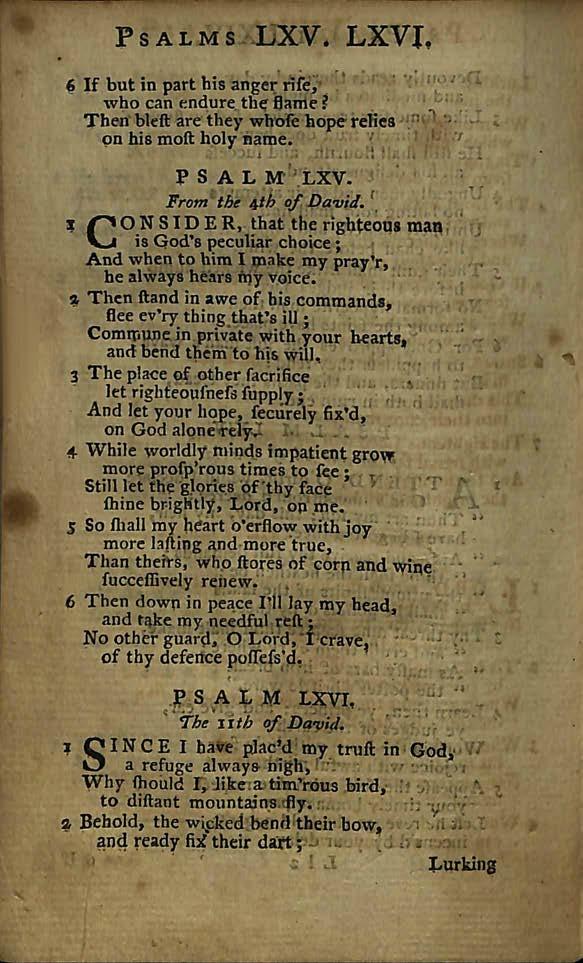 PSALMS LXV. LXVI.
6 If but in part his anger riſe,
who can endure the flame?
Then bleſt are they whoſe hope relies
on his moſt holy name.
PSALM LXV.
From the 4th of David.
1 CONSIDER, that the righteous man
is God's peculiar choice;
And when to him I make my pray'r,
he always hears my voice.
2 Then ſtand in awe of his commands,
flee ev'ry thing that's ill;
Commune in private with your hearts,
and bend them to his will.
3 The place of other ſacrifice
let righteouſneſs ſupply;
And let your hope, ſecurely fix'd,
on God alone rely.
4 While worldly minds impatient grow
more proſp'rous times to ſee;
Still let the glories of thy face
ſhine brightly, Lord, on me.
5 So ſhall my heart o'erflow with joy
more laſting and more true,
Than theirs, who ſtores of corn and wine
ſucceſſively renew.
6 Then down in peace I'll lay my head,
and take my needful reſt;
No other guard, O Lord, I crave,
of thy defence poſſeſs'd.
PSALM LXVI.
The 11th of David.
1 SINCE I have plac'd my truſt in God,
a refuge always nigh,
Why ſhould I, like a tim'rous bird,
to diſtant mountains fly.
2 Behold, the wicked bend their bow,
and ready fix their dart;
Lurking